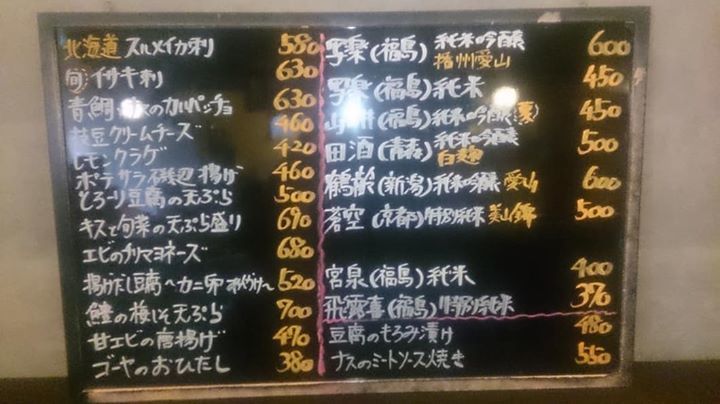 北海道 スルメイカ刺 580
旬 イサキ刺 630
青鯛 カルパッチョ 630
枝豆クリームチーズ 460
レモンクラゲ 420
ポテサラ磯辺揚げ 460
とろーり豆腐の天ぷら 500
キスと旬菜の天ぷら盛り 690
エビのプリマヨネーズ 680
揚げだし豆腐〜カニ卵 〜 520
鱧の梅しそ天ぷら 700
甘エビの唐揚げ 470
ゴーヤのおひたし 380
写楽(福島) 純米吟醸 600
播州愛山
写楽(福島)純米 450
(福島)純米吟醸(夏) 450
田酒(青森)純米吟醸 500
白麹
鶴齢(新潟)純米吟醸 愛山 600
蒼空(京都)特別純米 美山錦 500
宮泉(福島)純米 400
飛露喜(福島)特別純米 370
豆腐のもろみ漬け 480
ナスのミートソース焼き 550